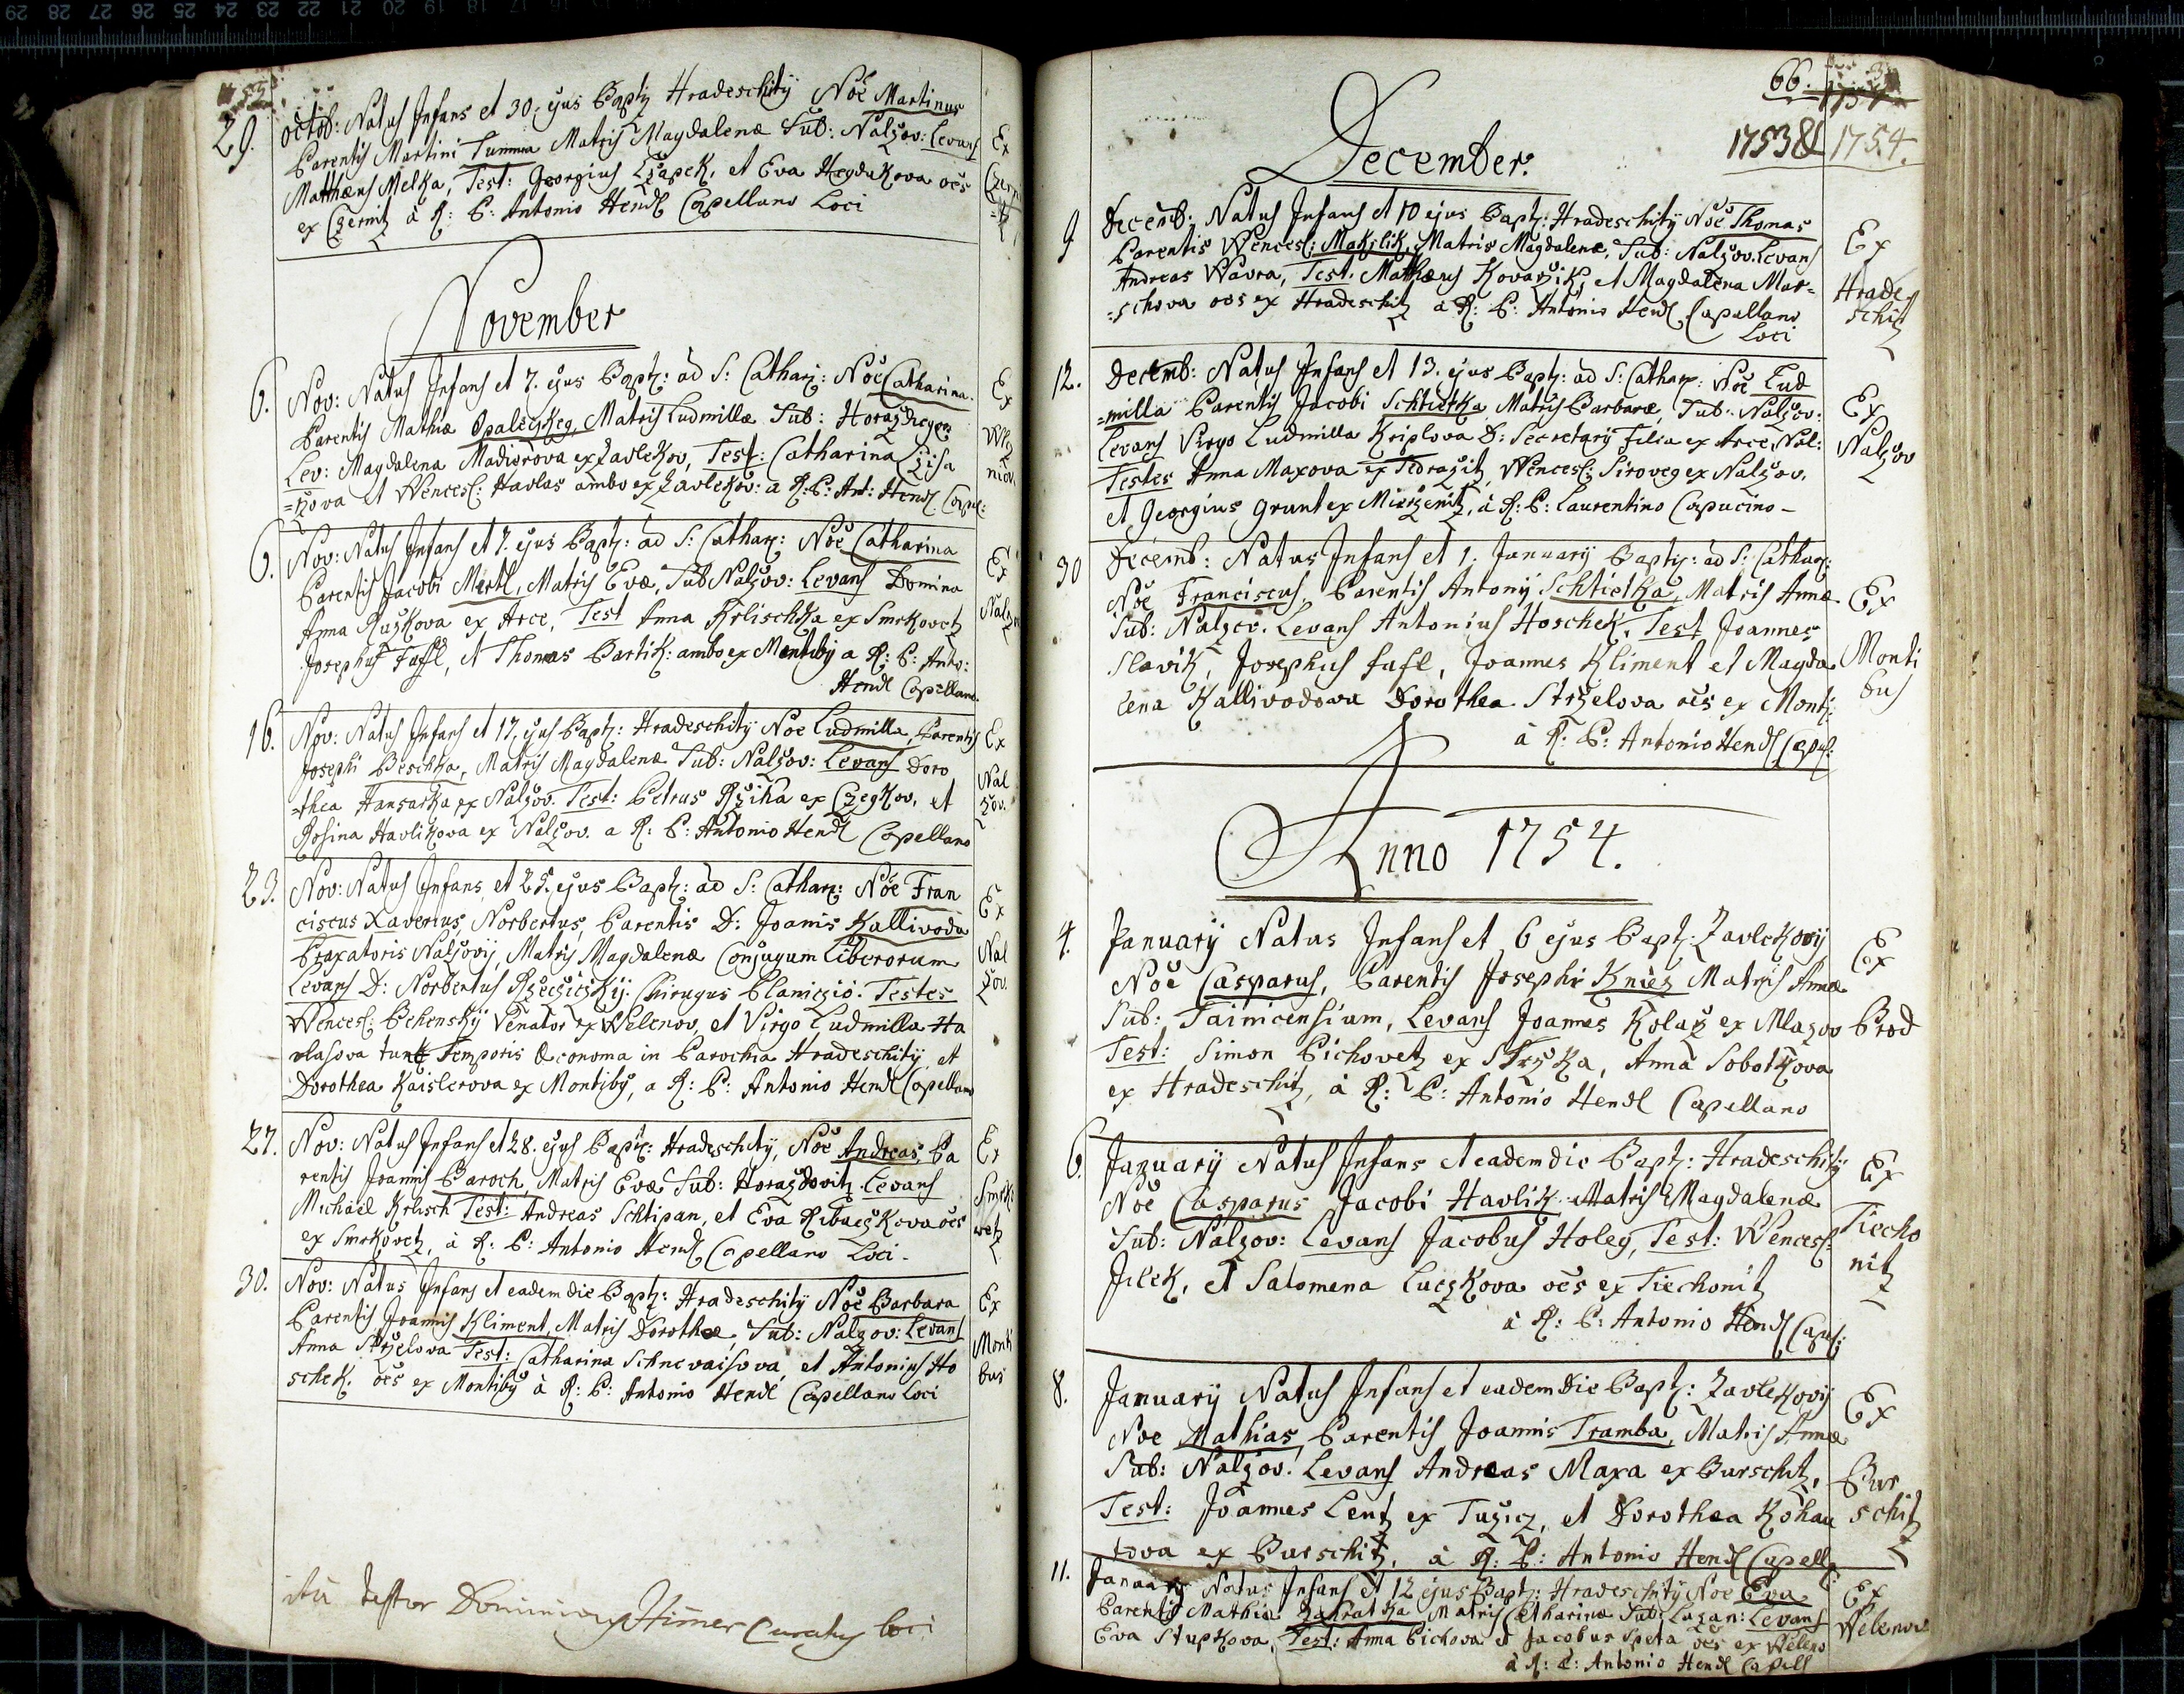 29.
octob: Natus Infans et 30. ejus Baptz Hradeschitÿ Noe Martinus
Parentis Martini Tumma Matris Magdalenæ Sub: Nalžov: Levans
Matthæus Melka, Test: Georgius Czapek, et Eva Hegdukova oes
ex Czernitz à R: P: Antonio Hendl Capellano Loci
Ex
Czern
November
6.
Nov: Natus Infans et 7. ejus Baptz: ad S: Cathar: Noe Catharina.
Parentis Mathiæ Opaleczkeg, Matris Ludmillæ Sub: Horazdiegow
Lev: Magdalena Madierova ex Zavlekov, Test: Catharina Cziga
=rzova et Wencesl: Havlas ambo ex Zavlekov: a R: P: Ant: Hendl Capel:
Ex
6.
Nov: Natus Infans et 7. ejus Baptz: ad S: Cathar: Noe Catharina
Parentis Jacobi Mertl, Matris Evæ, Sub Nalžov: Levans Domina
Anna Ružkova ex Arce, Test Anna Krlischka ex Smrkovetz
Josephus Fafl, et Thomas Bartik: ambo ex Montiby a R: P: Anto:
Hendl Capellano.
Ex
Nalžov
16.
Nov: Natus Infans et 17. ejus Baptz: Hradeschitÿ Noe Ludmilla, Parentis
Josephi Beschka, Matris Magdalenæ Sub: Nalžov: Levans Doro
=thea Hansarka ex Nalžov. Test: Petrus Ržiha ex Czegkov, et
Rosina Havlikova ex Nalžov. a R: P: Antonio Hendl Capellano
Ex
Nal
žov.
23.
Nov: Natus Infans, et 25. ejus Baptz: ad S: Cathar: Noe Fran
ciscus Xaverius, Norbertus, Parentis D: Joanis Kallivoda
Braxatoris Nalžovÿ, Matris Magdalenæ Conjugum Liberorum
Levans D: Norbertus Ržecziczkÿ. Chirugus Planiczió. Testes
Wencesl: Behenskÿ Venator ex Welenov, et Virgo Ludmilla Ha
vlasova tunc Temporis Œconoma in Parochia Hradeschitÿ et
Dorothea Kaislerova ex Montiby, a R: P: Antonio Hendl Capellano
Ex
Nal
žov.
27.
Nov: Natus Infans et 28. ejus Baptz: Hradeschitÿ, Noe Andreas, Pa
rentis Joannis Paroch, Matris Evæ Sub: Horazdovitz. Levans
Michäel Krlisch Test: Andreas Schtipan, et Eva Ribaczkova oes
ex Smrkovetz, à R: P: Antonio Hendl Capellano Loci.
Ex
Smrko
vetz
30.
Nov: Natus Infans et eadem die Baptz: Hradeschitÿ Noe Barbara
Parentis Joannis Kliment, Matris Dorotheæ, Sub: Nalžov: Levans
Anna Strzelova Test: Catharina Schnevaisova, et Antonius Ho
schek. oes ex Montiby à R: P: Antonio Hendl Capellano Loci
Ex
Monti
bus
ita testor Dominicus Himer Curatus loci
66.
1753 & 1754.
December.
9
Decemb: Natus Infans et 10 ejus Baptz: Hradeschitÿ Noe Thomas
Parentis Wencesl: Makslik, Matris Magdalenæ, Sub: Nalžov. Levans
Andreas Wavra, Test. Mathæus Kovarzik, et Magdalena Mar=
=schova oes ex Hradeschitz à R: P: Antonio Hendl Capellano
Loci
Ex
Hrade
schitz
12.
Decemb: Natus Infans et 13. ejus Baptz: ad S: Cathar: Noe Lud
=milla Parentis Jacobi Schtietka Matris Barbaræ, Sub: Nalžov:
Levans Virgo Ludmilla Kriplova D: Secretarÿ Filia ex Arce Nal:
Testes Anna Maxova ex Tedražitz, Wencesl: Siroveg ex Nalžov.
et Georgius Grunt ex Mierzenitz, à R: P: Laurentino Capucino –
Ex
Nalžov
30
Decemb: Natus Infans et 1. Januarÿ Baptz: ad S: Cathar:
Noe Franciscus, Parentis Antonÿ Schtietka, Matris Annæ
Sub: Nalžov. Levans Antonius Hoschek, Test Joannes
Slavik, Josephus Fafl, Joannes Kliment et Magda
lena Kallivodova Dorothea Strželova oes ex Monti:
à R: P: Antonio Hendl Capel:
Ex
Monti
bus
Anno 1754.
4.
Januarÿ Natus Infans et 6 ejus Baptz: Zavlekovÿ
Noe Casparus, Parentis Josephi Kniez Matris Annæ
Sub: Tainicensium, Levans Joannes Kolarz ex Mlazov
Test: Simon Bichovetz ex Stržka, Anna Sobotkova
ex Hradeschitz, à R: P: Antonio Hendl Capellano
Ex
Brod
6.
Januarÿ Natus Infans et eadem die Baptz: Hradeschitÿ
Noe Casparus Jacobi Havlik Matris Magdalenæ
Sub: Nalžov: Levans Jacobus Holeg, Test: Wencesl:
Jilek, et Salomena Luczkova oes ex Tiechonitz
à R: P: Antonio Hendl Capel:
Ex
Tiecho
nitz
8.
Januarÿ Natus Infans et eadem die Baptz: Zavlekovÿ
Noe Mathias, Parentis Joannis Tramba, Matris Annæ
Sub: Nalžov. Levans Andreas Maxa ex Burschitz,
Test: Joannes Lentz ex Tužicz, et Dorothea Kohau
tova ex Burschitz, à R: P: Antonio Hendl Capell:
Ex
Bur
schitz
11.
Januarÿ Natus Infans et 12 ejus Baptz: Hradeschitÿ Noe Eva
Parentis Mathiæ Zahratka Matris Catharinæ Sub: Lazan: Levans
Eva Stupkova, Test: Anna Bichova et Jacobus Speta oes ex Weleno
à R: P: Antonio Hendl Capell
Ex
Welenov